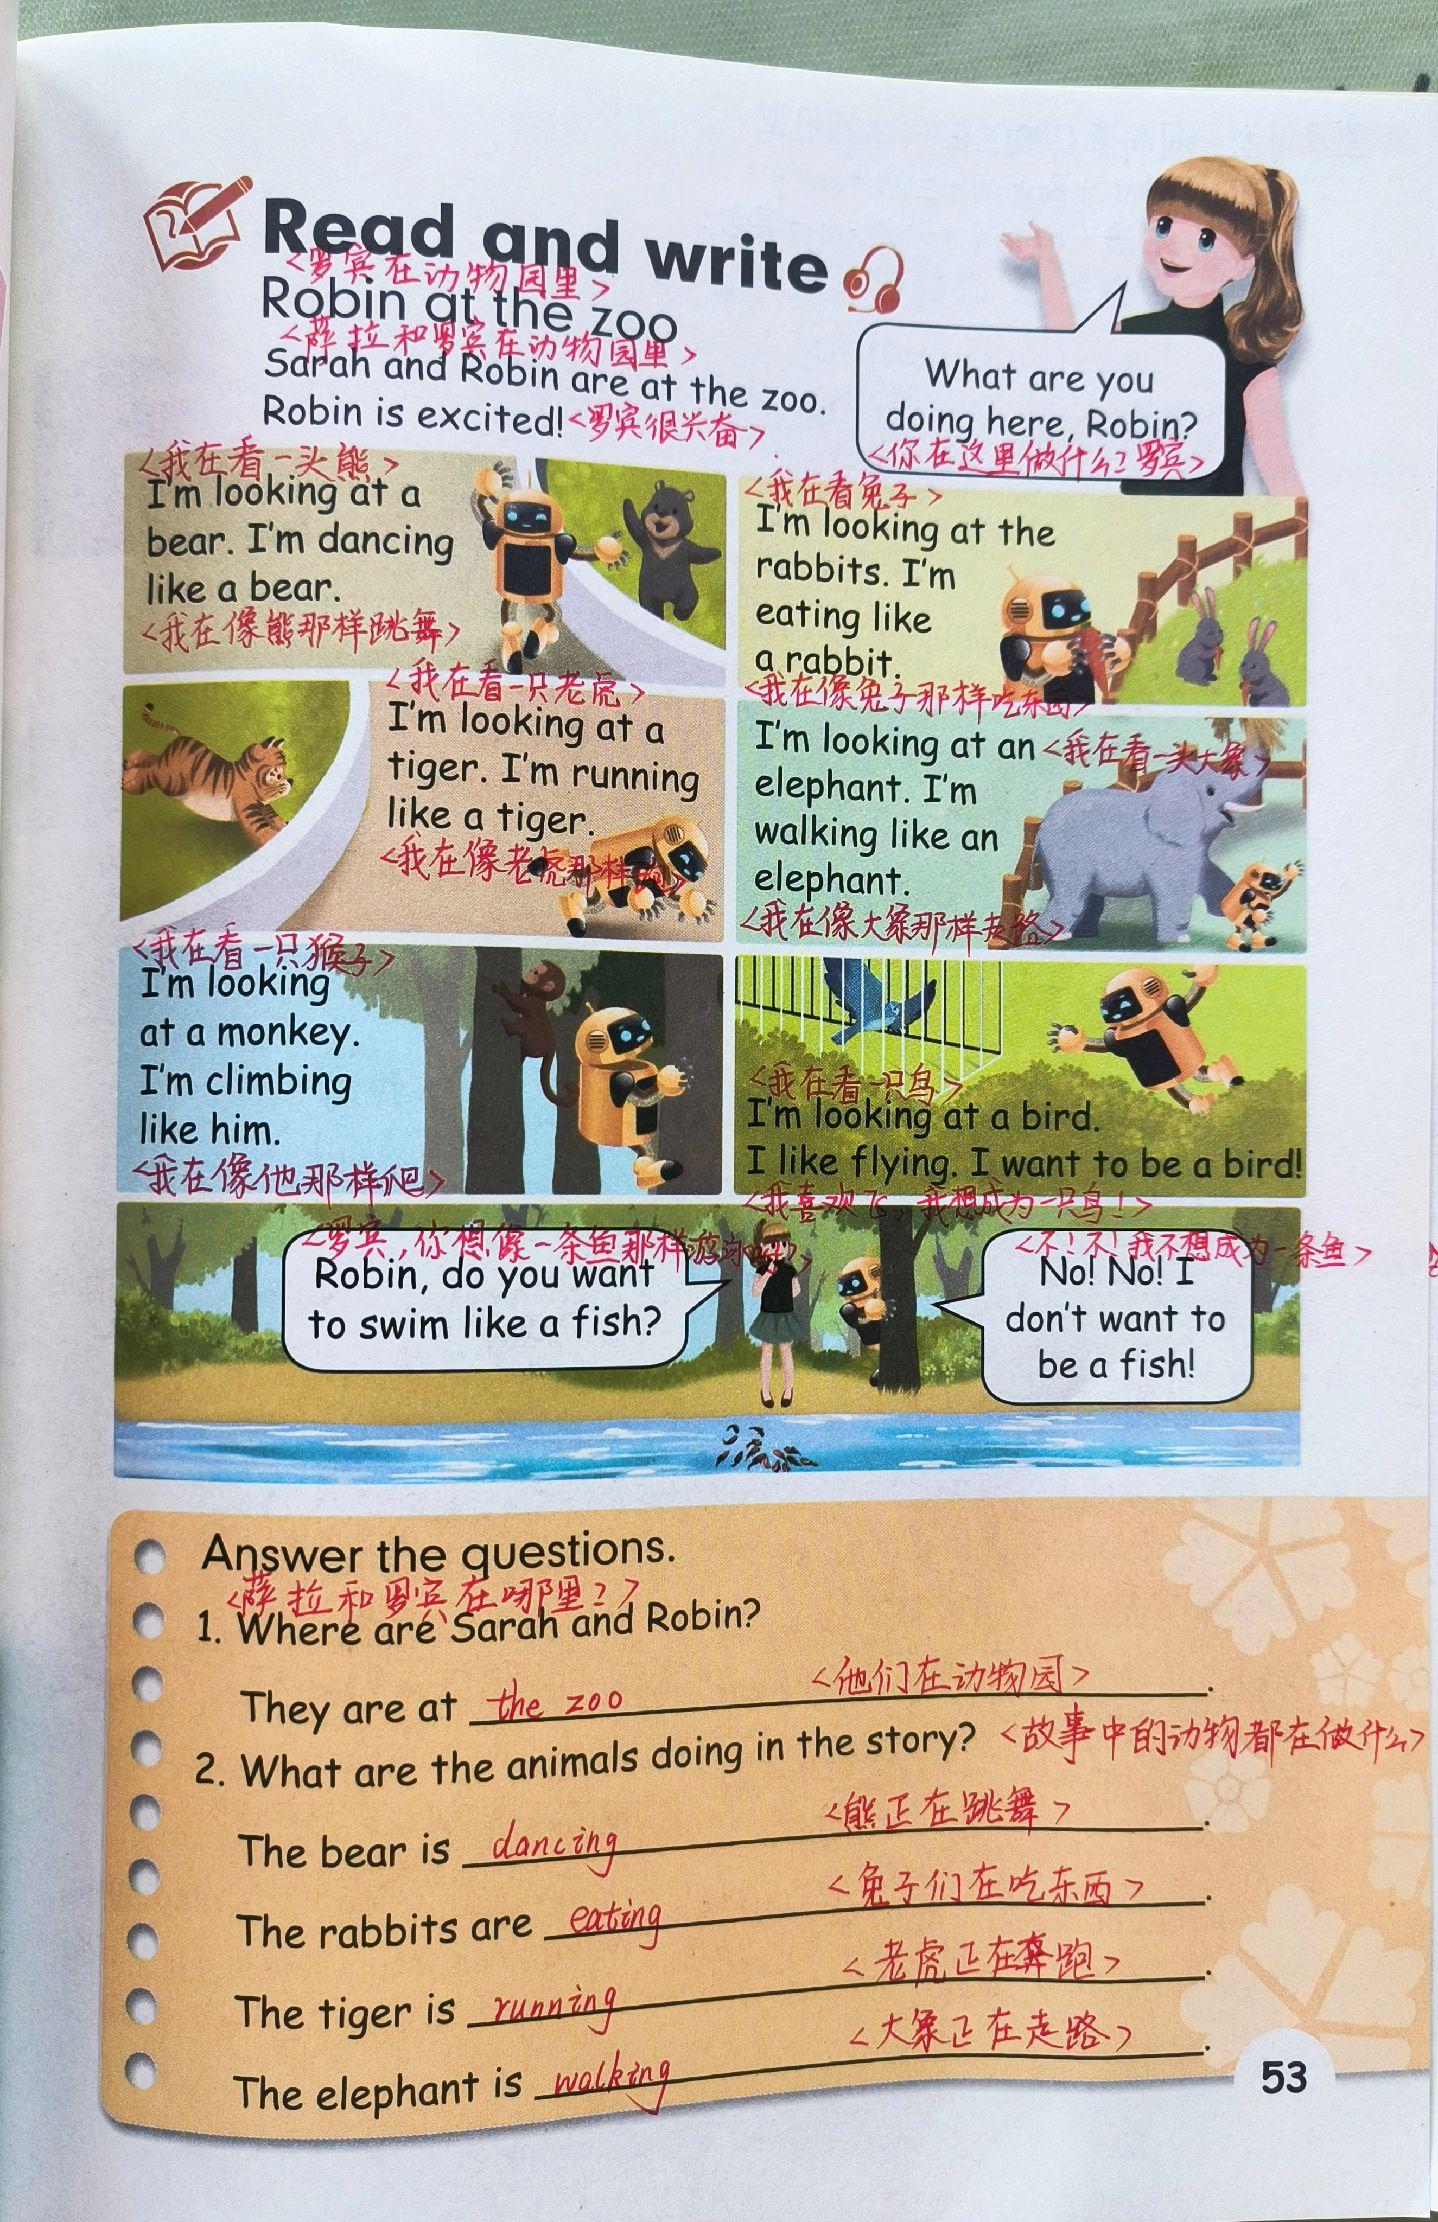 Read and write
<罗宾在动物园里>
Robin at the zoo
<薛拉和罗宾在动物园里>
Sarah and Robin are at the zoo.
Robin is excited! <罗宾很兴奋>
What are you
doing here, Robin?
<你在这里做什么?罗宾>
<我在看一头熊>
I'm looking at a
bear. I'm dancing
like a bear.
<我在像熊那样跳舞>
<我在看兔子>
I'm looking at the
rabbits. I'm
eating like
a rabbit.
<我在像兔子那样吃东西>
<我在看一只老虎>
I'm looking at a
tiger. I'm running
like a tiger.
<我在像老虎那样跑>
I'm looking at an <我在看一头大象>
elephant. I'm
walking like an
elephant.
<我在像大象那样走路>
<我在看一只猴子>
I'm looking
at a monkey.
I'm climbing
like him.
<我在像他那样爬>
<我在看一只鸟>
I'm looking at a bird.
I like flying. I want to be a bird!
<我喜欢飞,我想成为一只鸟!>
<罗宾,你想像一条鱼那样游泳呀>
Robin, do you want
to swim like a fish?
<不!不!我不想成为一条鱼>
No! No! I
don't want to
be a fish!
Answer the questions.
<薛拉和罗宾在哪里?>
1. Where are Sarah and Robin?
They are at the zoo <他们在动物园>.
2. What are the animals doing in the story? <故事中的动物都在做什么>
The bear is dancing <熊正在跳舞>.
The rabbits are eating <兔子们在吃东西>.
The tiger is running <老虎正在奔跑>.
The elephant is walking <大象正在走路>.
53